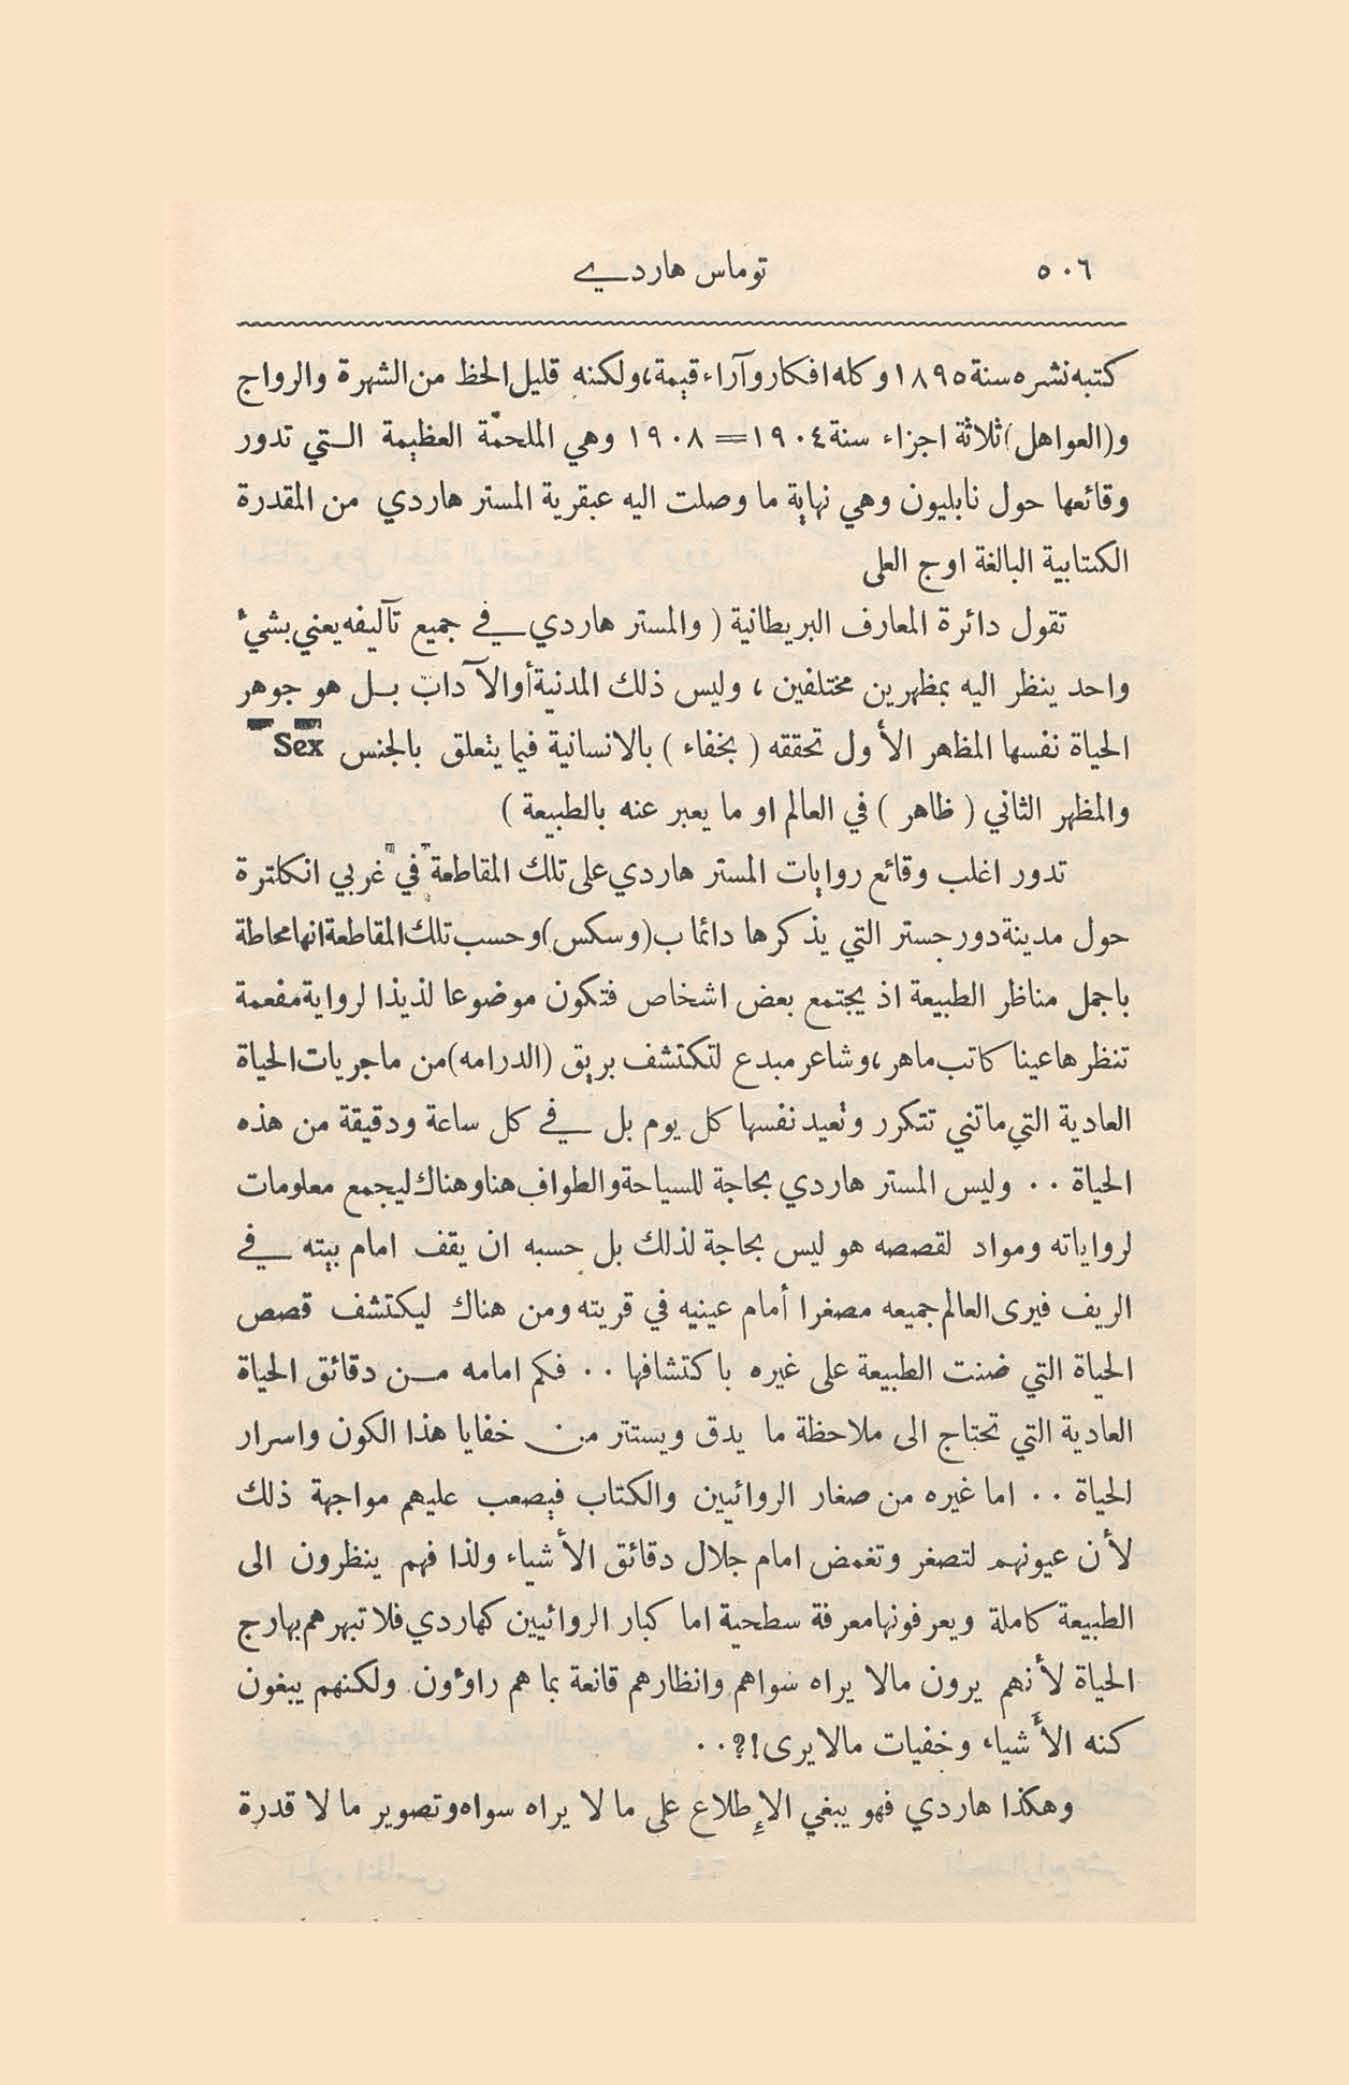 ٥٠٦
توماس هاردي
كتبه نشره سنة ١٨٩٥ وكله افكار وآراء قيمة، ولكنه قليل الحظ من الشهرة والرواج
و(العواهل) ثلاثة اجزاء سنة ١٩٠٤=١٩٠٨ وهي الملحمّة العظيمة التي تدور
وقائعها حول نابليون وهي نهاية ما وصلت اليه عبقرية المستر هاردي من المقدرة
الكتابية البالغة اوج العلى
تقول دائرة المعارف البريطانية ( والمستر هاردي في جميع تآليفه يعني بشيء
واحد ينظر اليه بمظهرين مختلفين ، وليس ذلك المدنية أوالآداب بل هو جوهر
الحياة نفسها المظهر الأول تحققه ( بخفاء ) بالانسانية فيما يتعلق بالجنس Sex
والمظهر الثاني ( ظاهر ) في العالم او ما يعبر عنه بالطبيعة )
تدور اغلب وقائع روايات المستر هاردي على تلك المقاطعة في غربي انكلترة
حول مدينة دورجستر التي يذكرها دائما ب(وسكس) وحسب تلك المقاطعة انها محاطة
باجمل مناظر الطبيعة اذ يجتمع بعض اشخاص فتكون موضوعا لذيذا لرواية مفعمة
تنظرها عينا كاتب ماهر، وشاعر مبدع لتكتشف بريق (الدرامه) من ماجريات الحياة
العادية التي ماتني تتكرر وتعيد نفسها كل يوم بل في كل ساعة ودقيقة من هذه
الحياة .. وليس المستر هاردي بحاجة للسياحة والطواف هنا وهناك ليجمع معلومات
لرواياته ومواد لقصصه هو ليس بحاجة لذلك بل حسبه ان يقف امام بيته في
الريف فيرى العالم جميعه مصغرا أمام عينيه في قريته ومن هناك ليكتشف قصص
الحياة التي ضنت الطبيعة على غيره باكتشافها .. فكم امامه من دقائق الحياة
العادية التي تحتاج الى ملاحظة ما يدق ويستتر من خفايا هذا الكون واسرار
الحياة .. اما غيره من صغار الروائيين والكتاب فيصعب عليهم مواجهة ذلك
لأن عيونهم لتصغر وتغمض امام جلال دقائق الأشياء ولذا فهم ينظرون الى
الطبيعة كاملة ويعرفونها معرفة سطحية اما كبار الروائيين كهاردي فلا تبهرهم بهارج
الحياة لأنهم يرون مالا يراه سواهم وانظارهم قانعة بما هم راوءون ولكنهم يبغون
كنه الأشياء وخفيات مالا يرى!؟..
وهكذا هاردي فهو يبغي الإطلاع على ما لا يراه سواه وتصوير ما لا قدرة